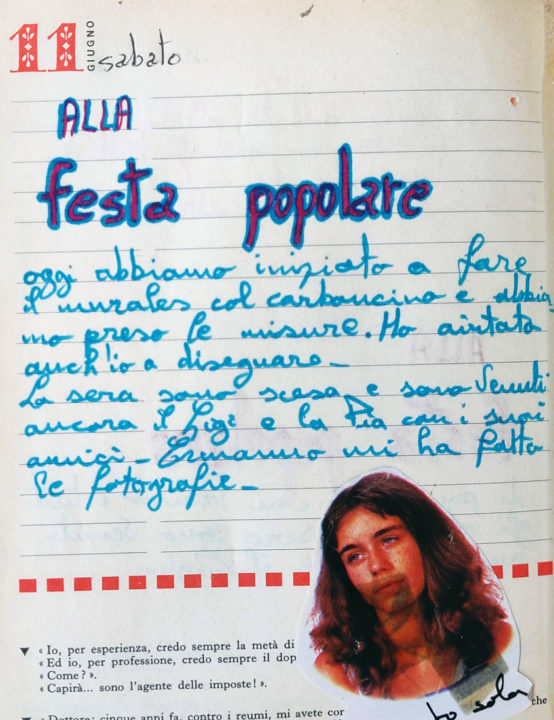 11 GIUGNO sabato
ALLA
festa popolare
oggi abbiamo iniziato a fare
il murales col carboncino e abbia
mo preso le misure. Ho aiutato
anch'io a disegnare_
La sera sono scesa, e sono venuti
ancora il Gigi e la Pia con i suoi
amici_ Ermanno mi ha fatto
le fotografie_
« Io, per esperienza, credo sempre la metà di
« Ed io, per professione, credo sempre il dop
« Come? ».
« Capirà... sono l'agente delle imposte! ».
« Dottore: cinque anni fa, contro i reumi, mi avete cor
che
sola